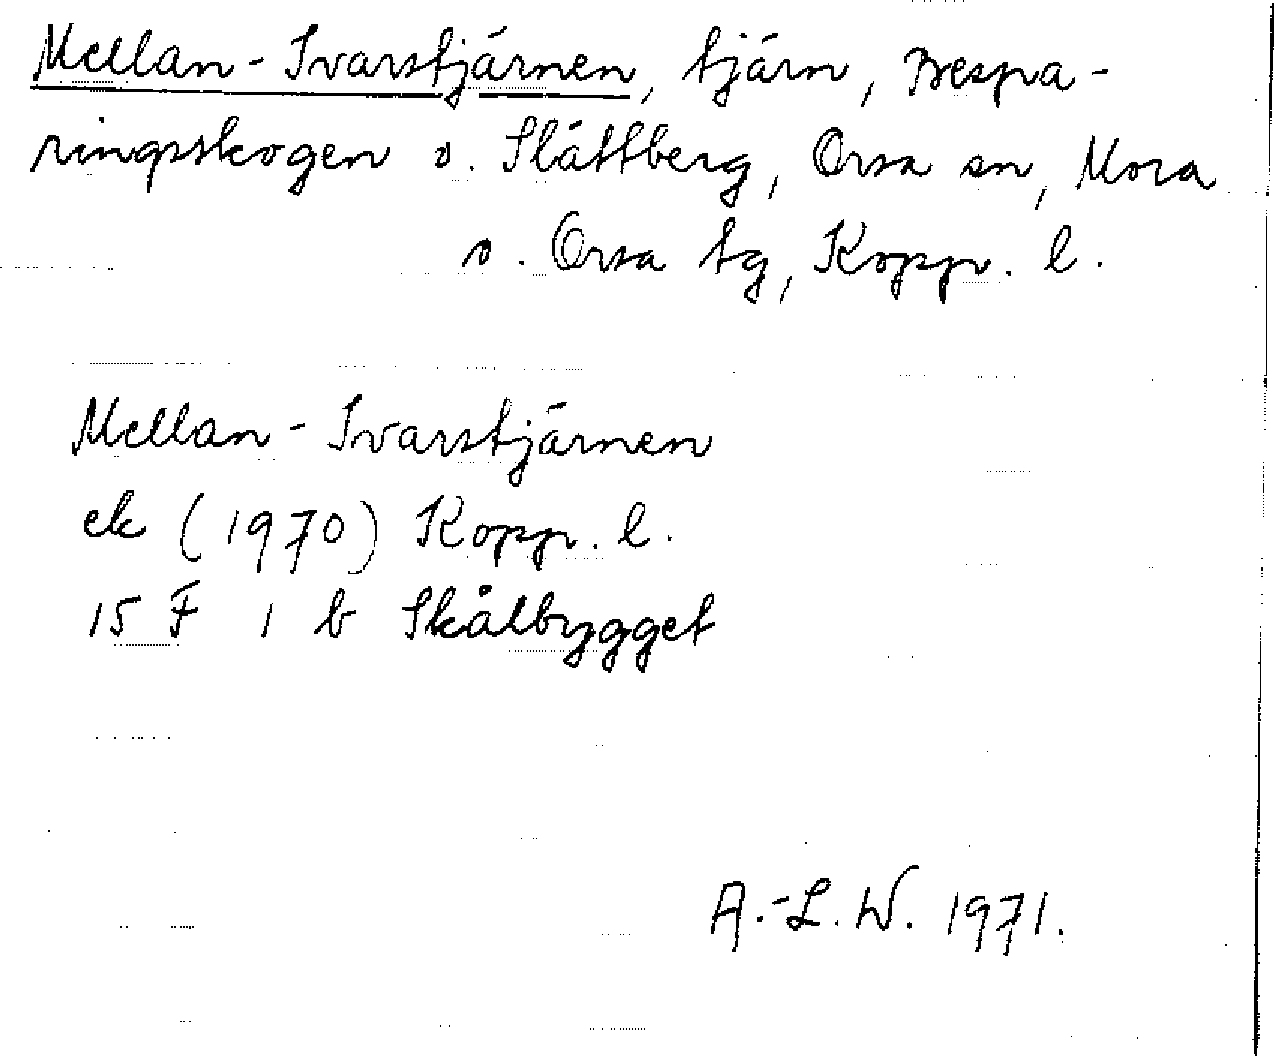 Mellan-Ivarstjärnen, tjärn, Bespa-
ringsskogen o. Slättberg, Orsa sn, Mora
o. Orsa tg, Kopp. l.
Mellan-Ivarstjärnen
ek (1970) Kopp. l.
15 F 1 b Skålbygget
A.-L.W. 1971.